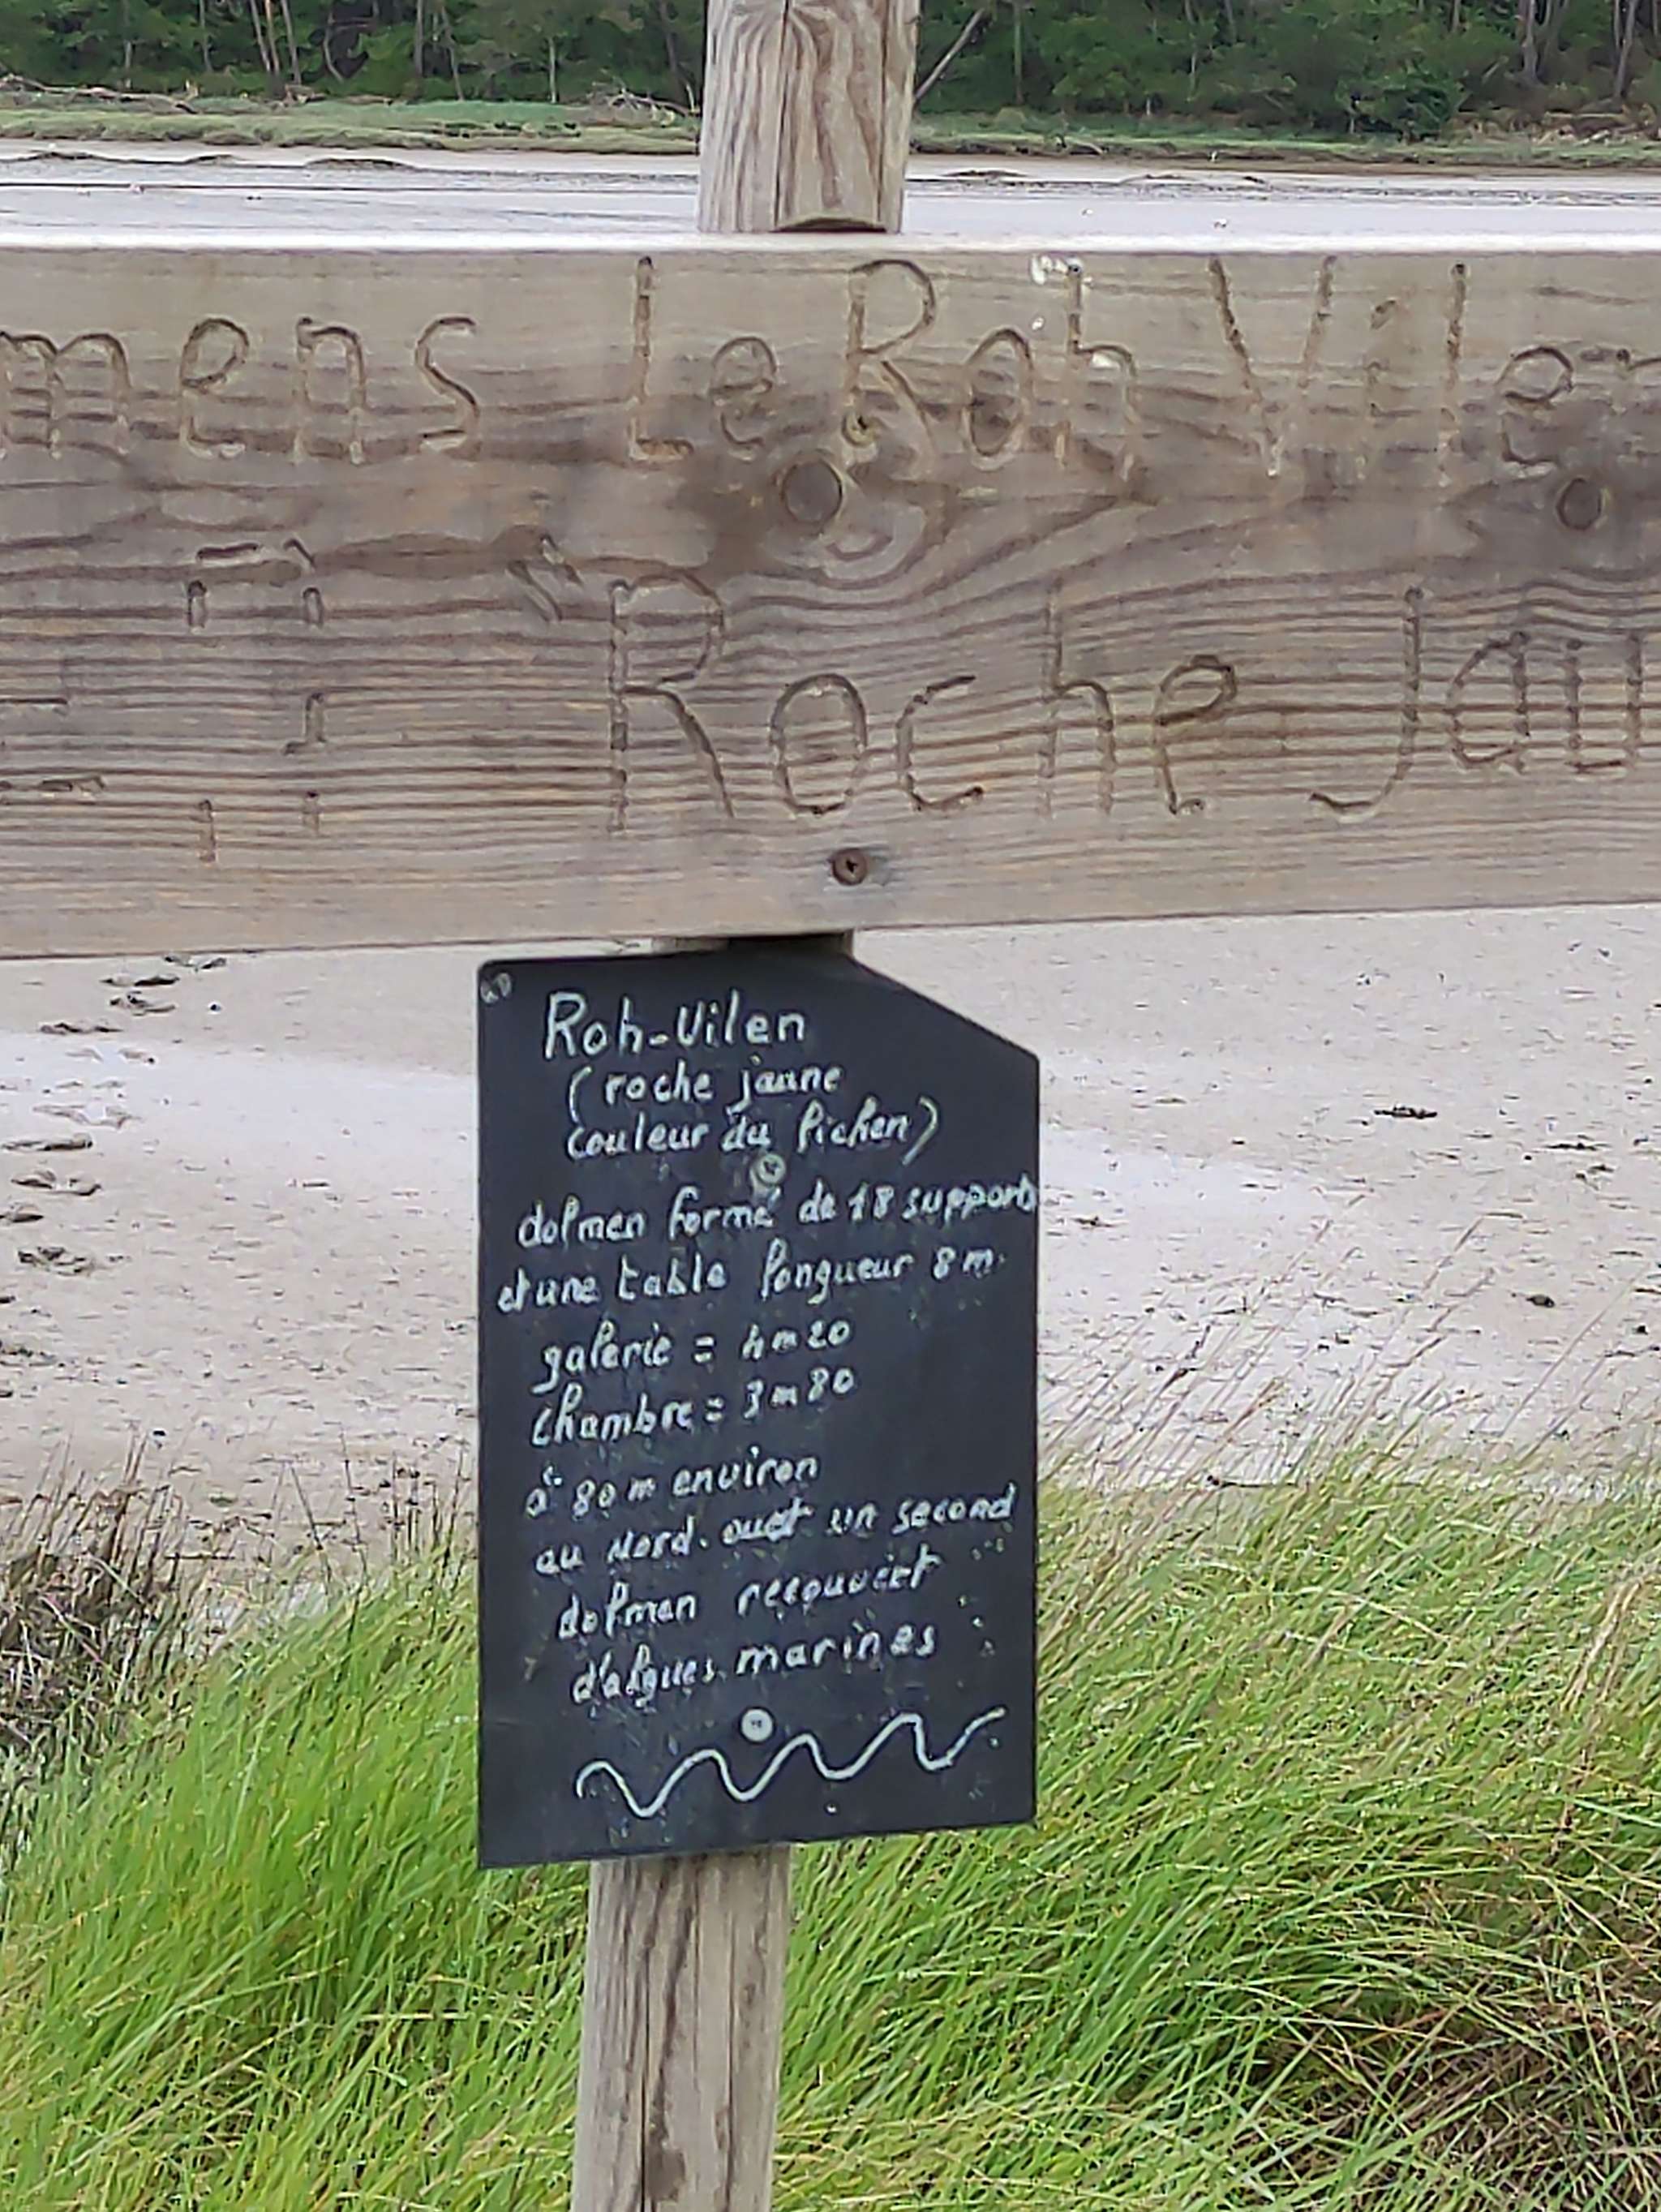 mens Le Roh Vilen
"Roche Jau
Roh-Vilen
(roche jaune
couleur du lichen)
dolmen formé de 18 supports
et une table longueur 8 m.
galerie = 4 m 20
chambre = 3 m 80
à 80 m environ
au Nord-ouest un second
dolmen recouvert
d'algues marines